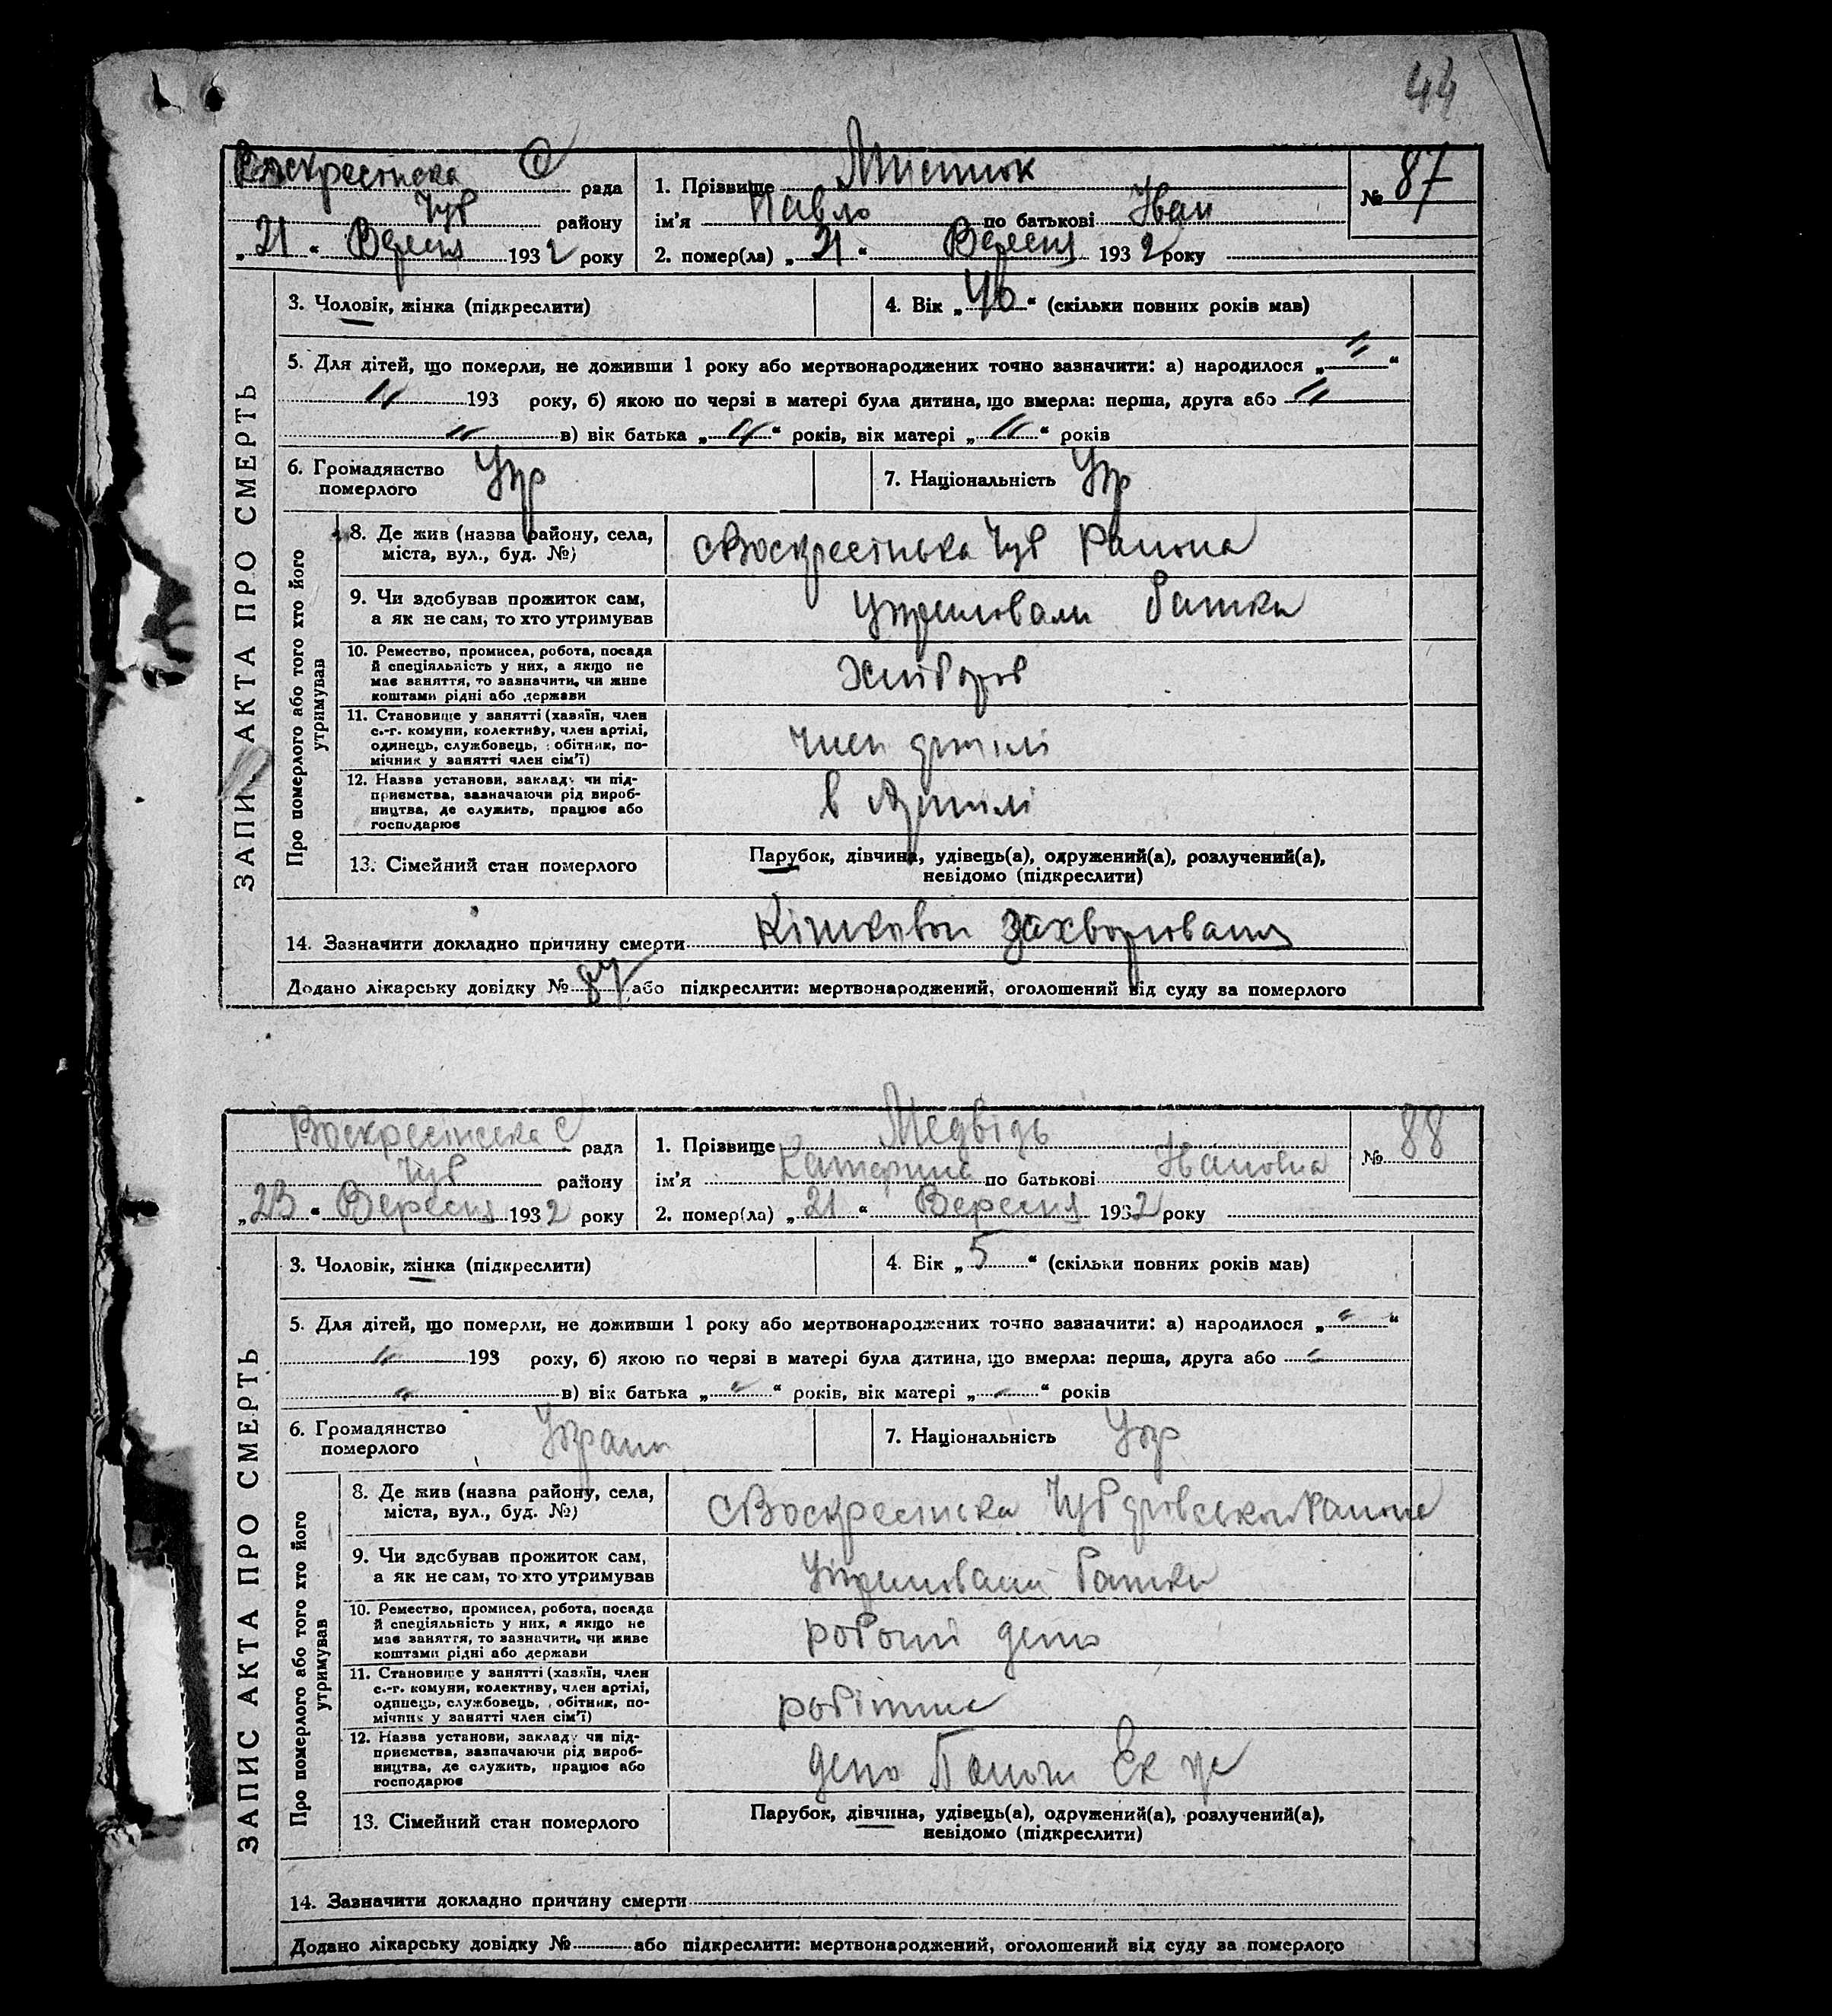 44
Воскресінска С рада
Чуб району
„21“ Вересня 1932 року
1. Прізвище
ім'я Павло по батькові Іван
2. помер(ла) „21“ Вересня 1932 року
№ 87
ЗАПИС АКТА ПРО СМЕРТЬ
3. Чоловік, жінка (підкреслити)
4. Вік „“ (скільки повних років мав)
5. Для дітей, що померли, не доживши 1 року або мертвонароджених точно зазначити: а) народилося „〃“
〃 193 року, б) якою по черзі в матері була дитина, що вмерла: перша, друга або 〃
〃 в) вік батька „〃“ років, вік матері „〃“ років
6. Громадянство
померлого Укр
7. Національність Укр
Про померлого або того хто його
утримував
8. Де жив (назва району, села,
міста, вул., буд. №)
с Воскресінька Чуб Района
9. Чи здобував прожиток сам,
а як не сам, то хто утримував
Утримовали батьки
10. Ремество, промисел, робота, посада
й спеціяльність у них, а якщо не
має заняття, то зазначити, чи живе
коштами рідні або держави
Хлібороб
11. Становище у занятті (хазяїн, член
с.-г. комуни, колективу, член артілі,
одинець, службовець, робітник, по-
мічник у занятті член сім'ї)
член артілі
12. Назва установи, закладу чи під-
приємства, зазначаючи рід вироб-
ництва, де служить, працює або
господарює
в Артилі
13. Сімейний стан померлого
Парубок, дівчина, удівець(а), одружений(а), розлучений(а),
невідомо (підкреслити)
14. Зазначити докладно причину смерти Кішкового захворювання
Додано лікарську довідку № 87 або підкреслити: мертвонароджений, оголошений від суду за померлого
Воскресінська С рада
Чуб району
„23“ Вересня 1932 року
1. Прізвище Медвідь
ім'я Катерина по батькові Івановна
2. помер(ла) „21“ Вересня 1932 року
№ 88
ЗАПИС АКТА ПРО СМЕРТЬ
3. Чоловік, жінка (підкреслити)
4. Вік „5“ (скільки повних років мав)
5. Для дітей, що померли, не доживши 1 року або мертвонароджених точно зазначити: а) народилося „〃“
〃 193 року, б) якою по черзі в матері була дитина, що вмерла: перша, друга або 〃
〃 в) вік батька „〃“ років, вік матері „〃“ років
6. Громадянство
померлого Україн
7. Національність Укр
Про померлого або того хто його
утримував
8. Де жив (назва району, села,
міста, вул., буд. №)
с Воскресінска Чубарівського Района
9. Чи здобував прожиток сам,
а як не сам, то хто утримував
Утримовали батьки
10. Ремество, промисел, робота, посада
й спеціяльність у них, а якщо не
має заняття, то зазначити, чи живе
коштами рідні або держави
робочий депо
11. Становище у занятті (хазяїн, член
с.-г. комуни, колективу, член артілі,
одинець, службовець, робітник, по-
мічник у занятті член сім'ї)
робітник
12. Назва установи, закладу чи під-
приємства, зазначаючи рід вироб-
ництва, де служить, працює або
господарює
депо Ек
13. Сімейний стан померлого
Парубок, дівчина, удівець(а), одружений(а), розлучений(а),
невідомо (підкреслити)
14. Зазначити докладно причину смерти
Додано лікарську довідку № або підкреслити: мертвонароджений, оголошений від суду за померлого